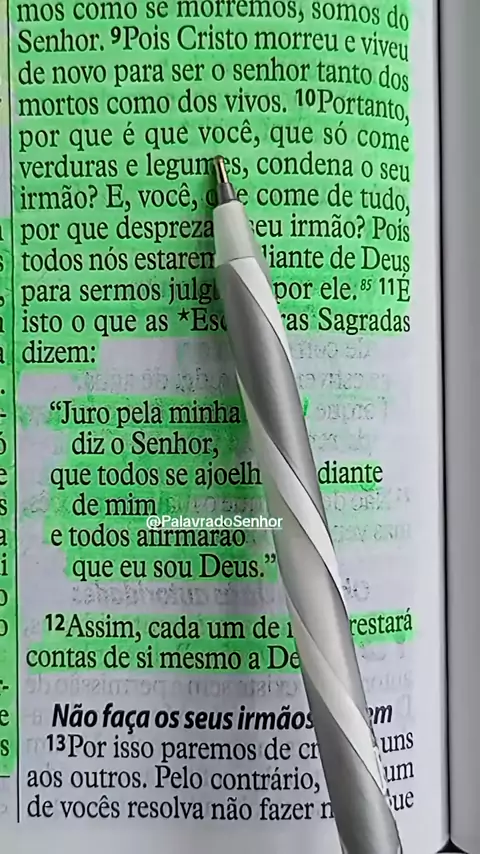 mos como se morremos, somos do
Senhor. 9Pois Cristo morreu e viveu
de novo para ser o senhor tanto dos
mortos como dos vivos. 10Portanto,
por que é que você, que só come
verduras e legumes, condena o seu
irmão? E, você, que come de tudo,
por que despreza seu irmão? Pois
todos nós estarem diante de Deus
para sermos julg por ele. 85 11É
isto o que as *Esc ras Sagradas
dizem:
“Juro pela minha
diz o Senhor,
que todos se ajoelh diante
de mim
@PalavradoSenhor
e todos afirmarão
que eu sou Deus.”
12Assim, cada um de restará
contas de si mesmo a De
Não faça os seus irmãos em
13Por isso paremos de cr uns
aos outros. Pelo contrário, um
de vocês resolva não fazer n ue